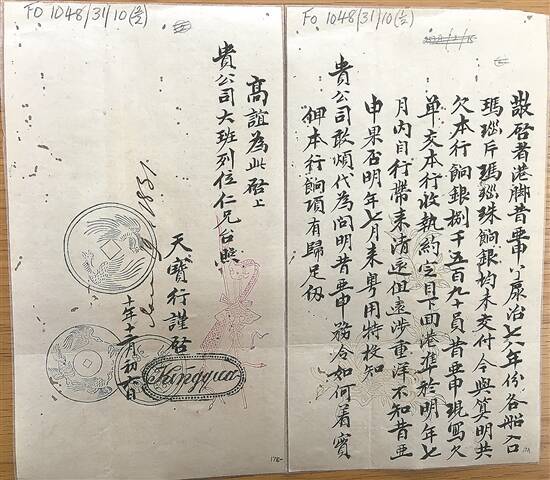 FO 1048/31/10 (1/2)
敬啓者港脚昔亞申 治七八年份各船口
瑪瑙片瑪瑙珠餉銀均未交付今與算明共
欠本行餉銀捌千五百九十員昔亞申現寫欠
单交本行收執約定目下回港準於明年七
月內自行帶來清還但遠涉重洋不知昔亞
申果否明年七月來粤用特投知
貴公司敢煩代為問明昔亞申務令如何着實
俾本行餉項有歸足仞
FO 1048/31/10 (2/2)
高誼為此啓上
貴公司大班列位仁兄台照
天寶行謹啓
Kingqua
1831
十年十二月初六日